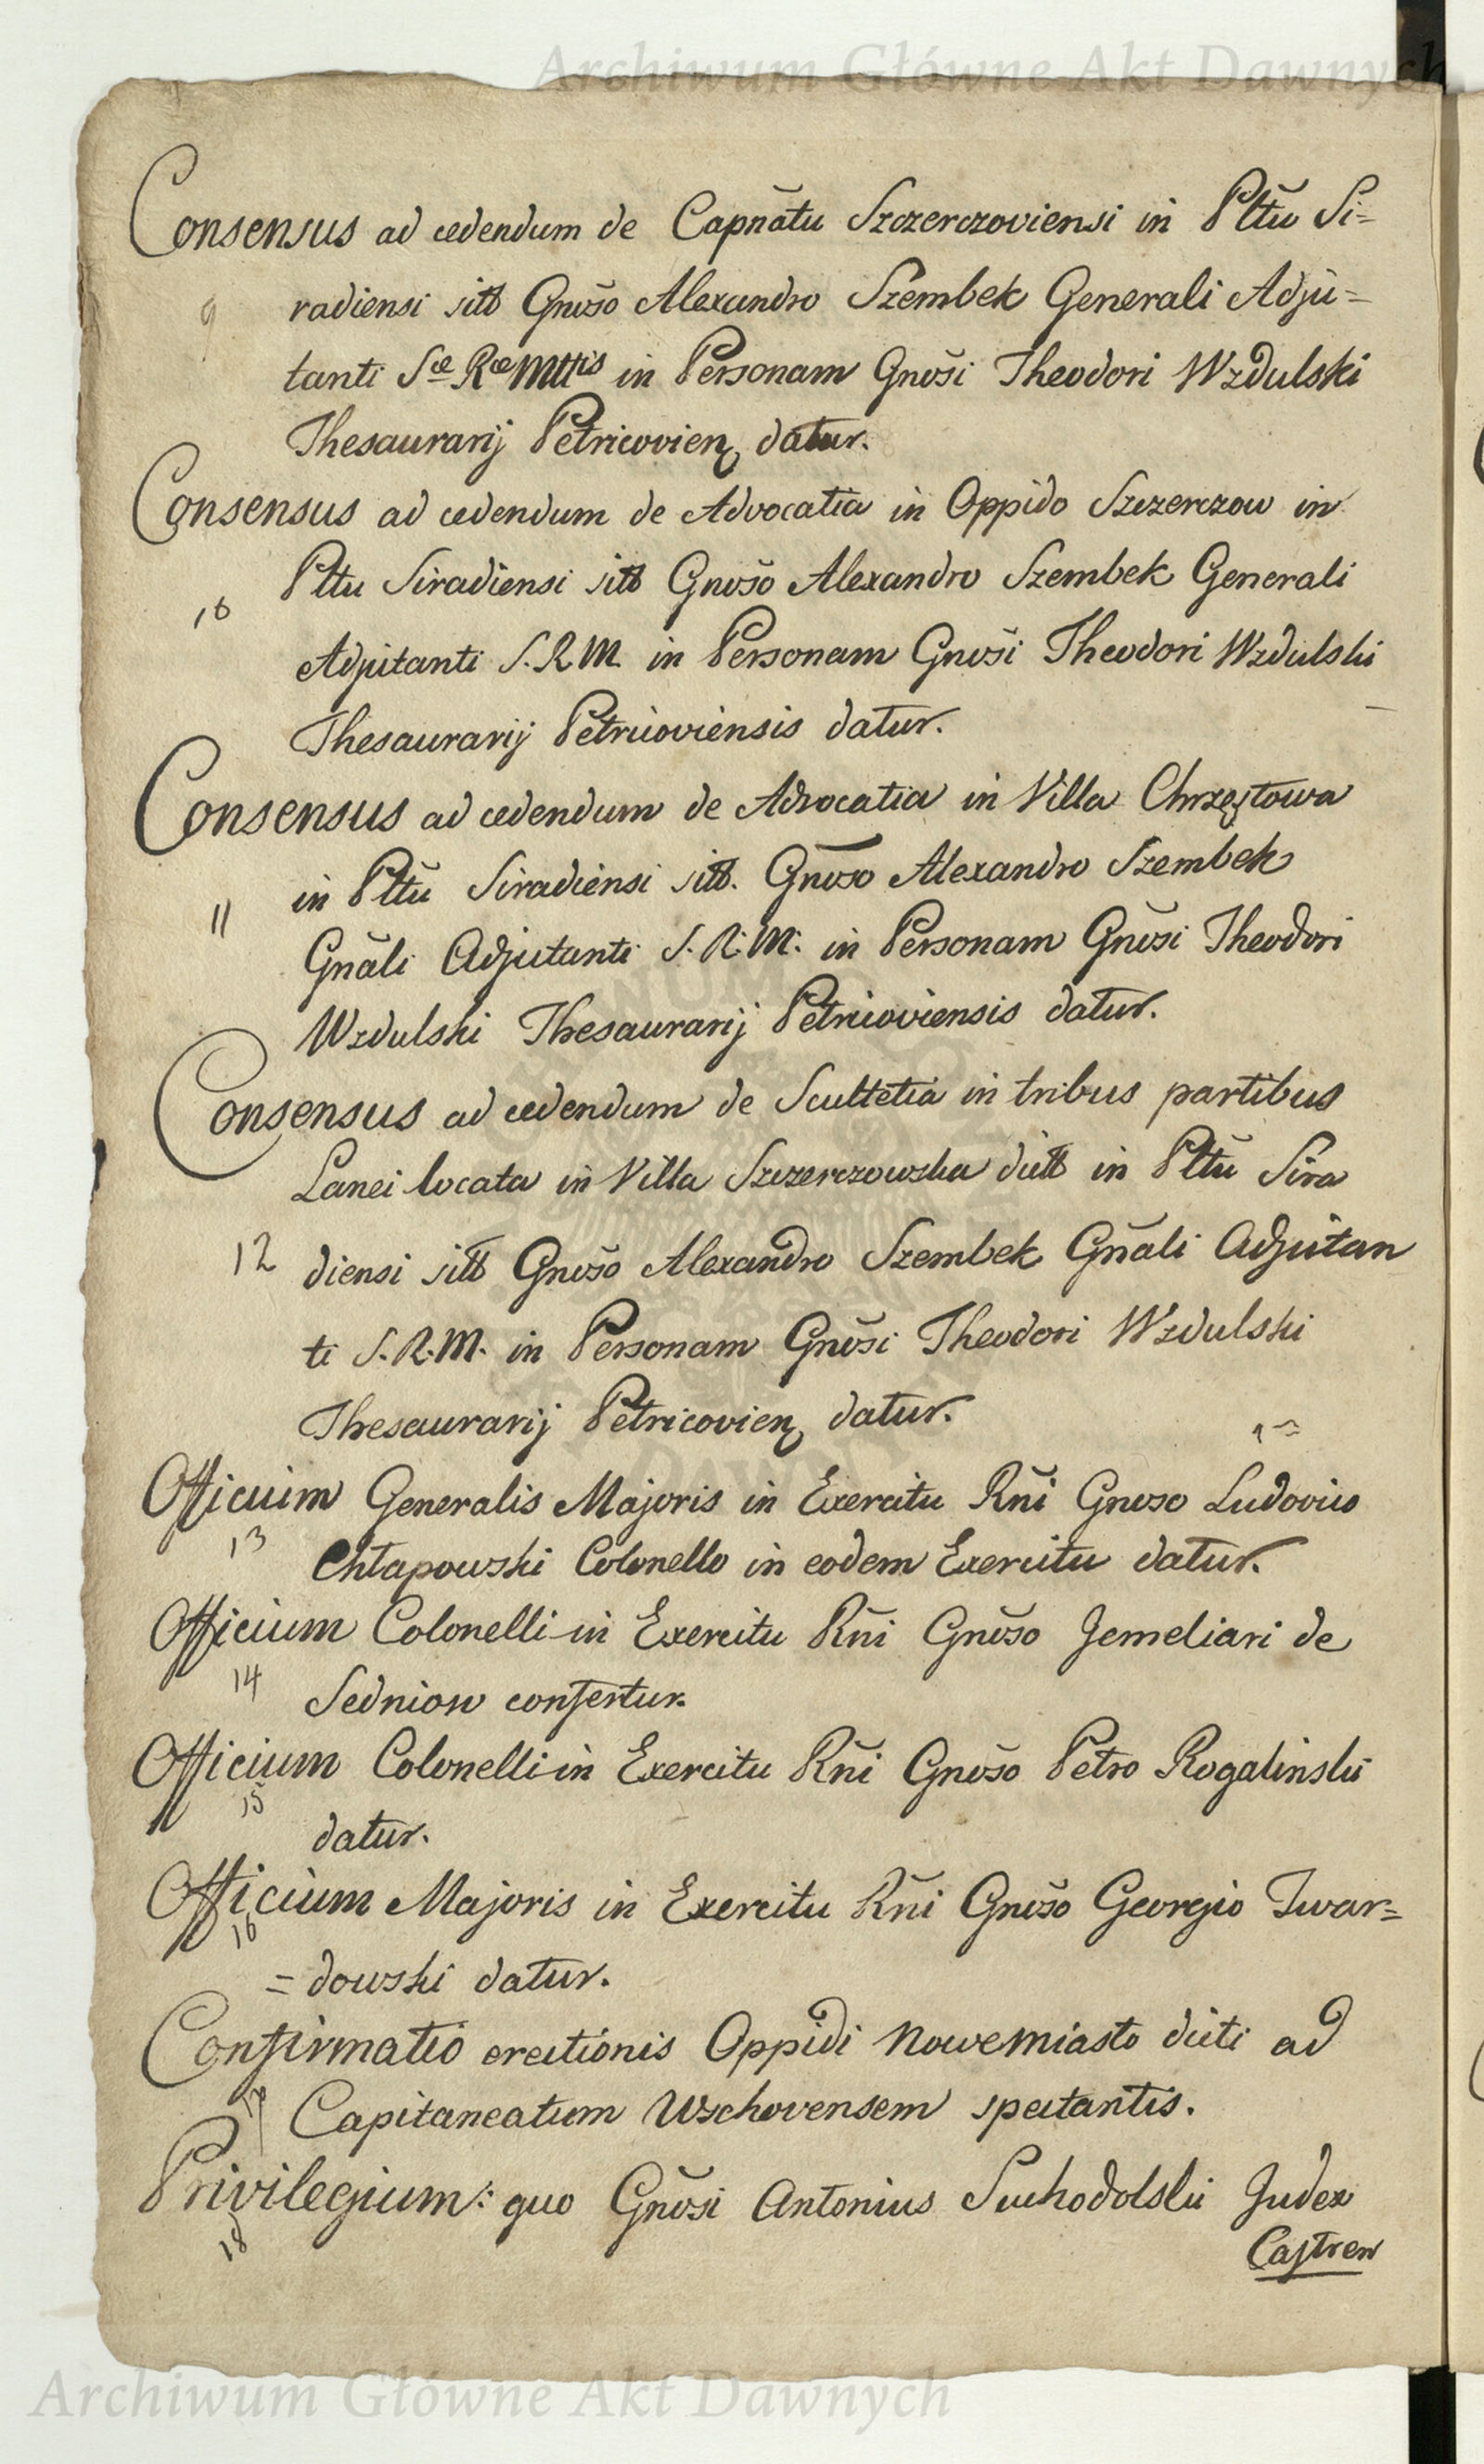 Archiwum Główne Akt Dawnych
Consensus ad cedendum de Capñatu Szczerczoviensi in Pltũ Si=
9 radiensi sitt Gnõso Alexandro Szembek Generali Adju=
tanti Sæ Ræ Mttis in Personam Gnõsi Theodori Wzdulski
Thesaurarij Petricovien datur.
Consensus ad cedendum de Advocatia in Oppido Szczerczow in
Pltu Siradiensi sitt Gnõso Alexandro Szembek Generali
10
Adjutanti S.R.M. in Personam Gnõsi Theodori Wzdulski
Thesaurarij Petricoviensis datur.
Consensus ad cedendum de Advocatia in Villa Chrzęstowa
in Pltũ Siradiensi sitt. Gnõso Alexandro Szembek
11
Gñali Adjutanti S.R.M. in Personam Gnõsi Theodori
Wzdulski Thesaurarij Petricoviensis datur.
Consensus ad cedendum de Scultetia in tribus partibus
Lanei locata in Villa Szczerczowska dictt in Pltũ Sira
12 diensi sitt Gnõso Alexandro Szembek Gñali Adjutan
ti S.R.M. in Personam Gnõsi Theodori Wzdulski
Thesaurarij Petricovien datur.
Officium Generalis Majoris in Exercitu Rñi Gnoso Ludovico
13 Chłapowski Colonello in eodem Exercitu datur.
Officium Colonelli in Exercitu Rñi Gnõso Jemeliari de
14 Sedniow confertur.
Officium Colonelli in Exercitu Rñi Gnõso Petro Rogalinski
15 datur.
Officium Majoris in Exercitu Rñi Gnõso Georgio Twar=
16
=dowski datur.
Confirmatio erectionis Oppidi Nowemiasto dicti ad
17 Capitaneatum Wschovensem spectantis.
Privilegium: quo Gnõsi Antonius Suchodolski Judex
18
Castren
Archiwum Główne Akt Dawnych